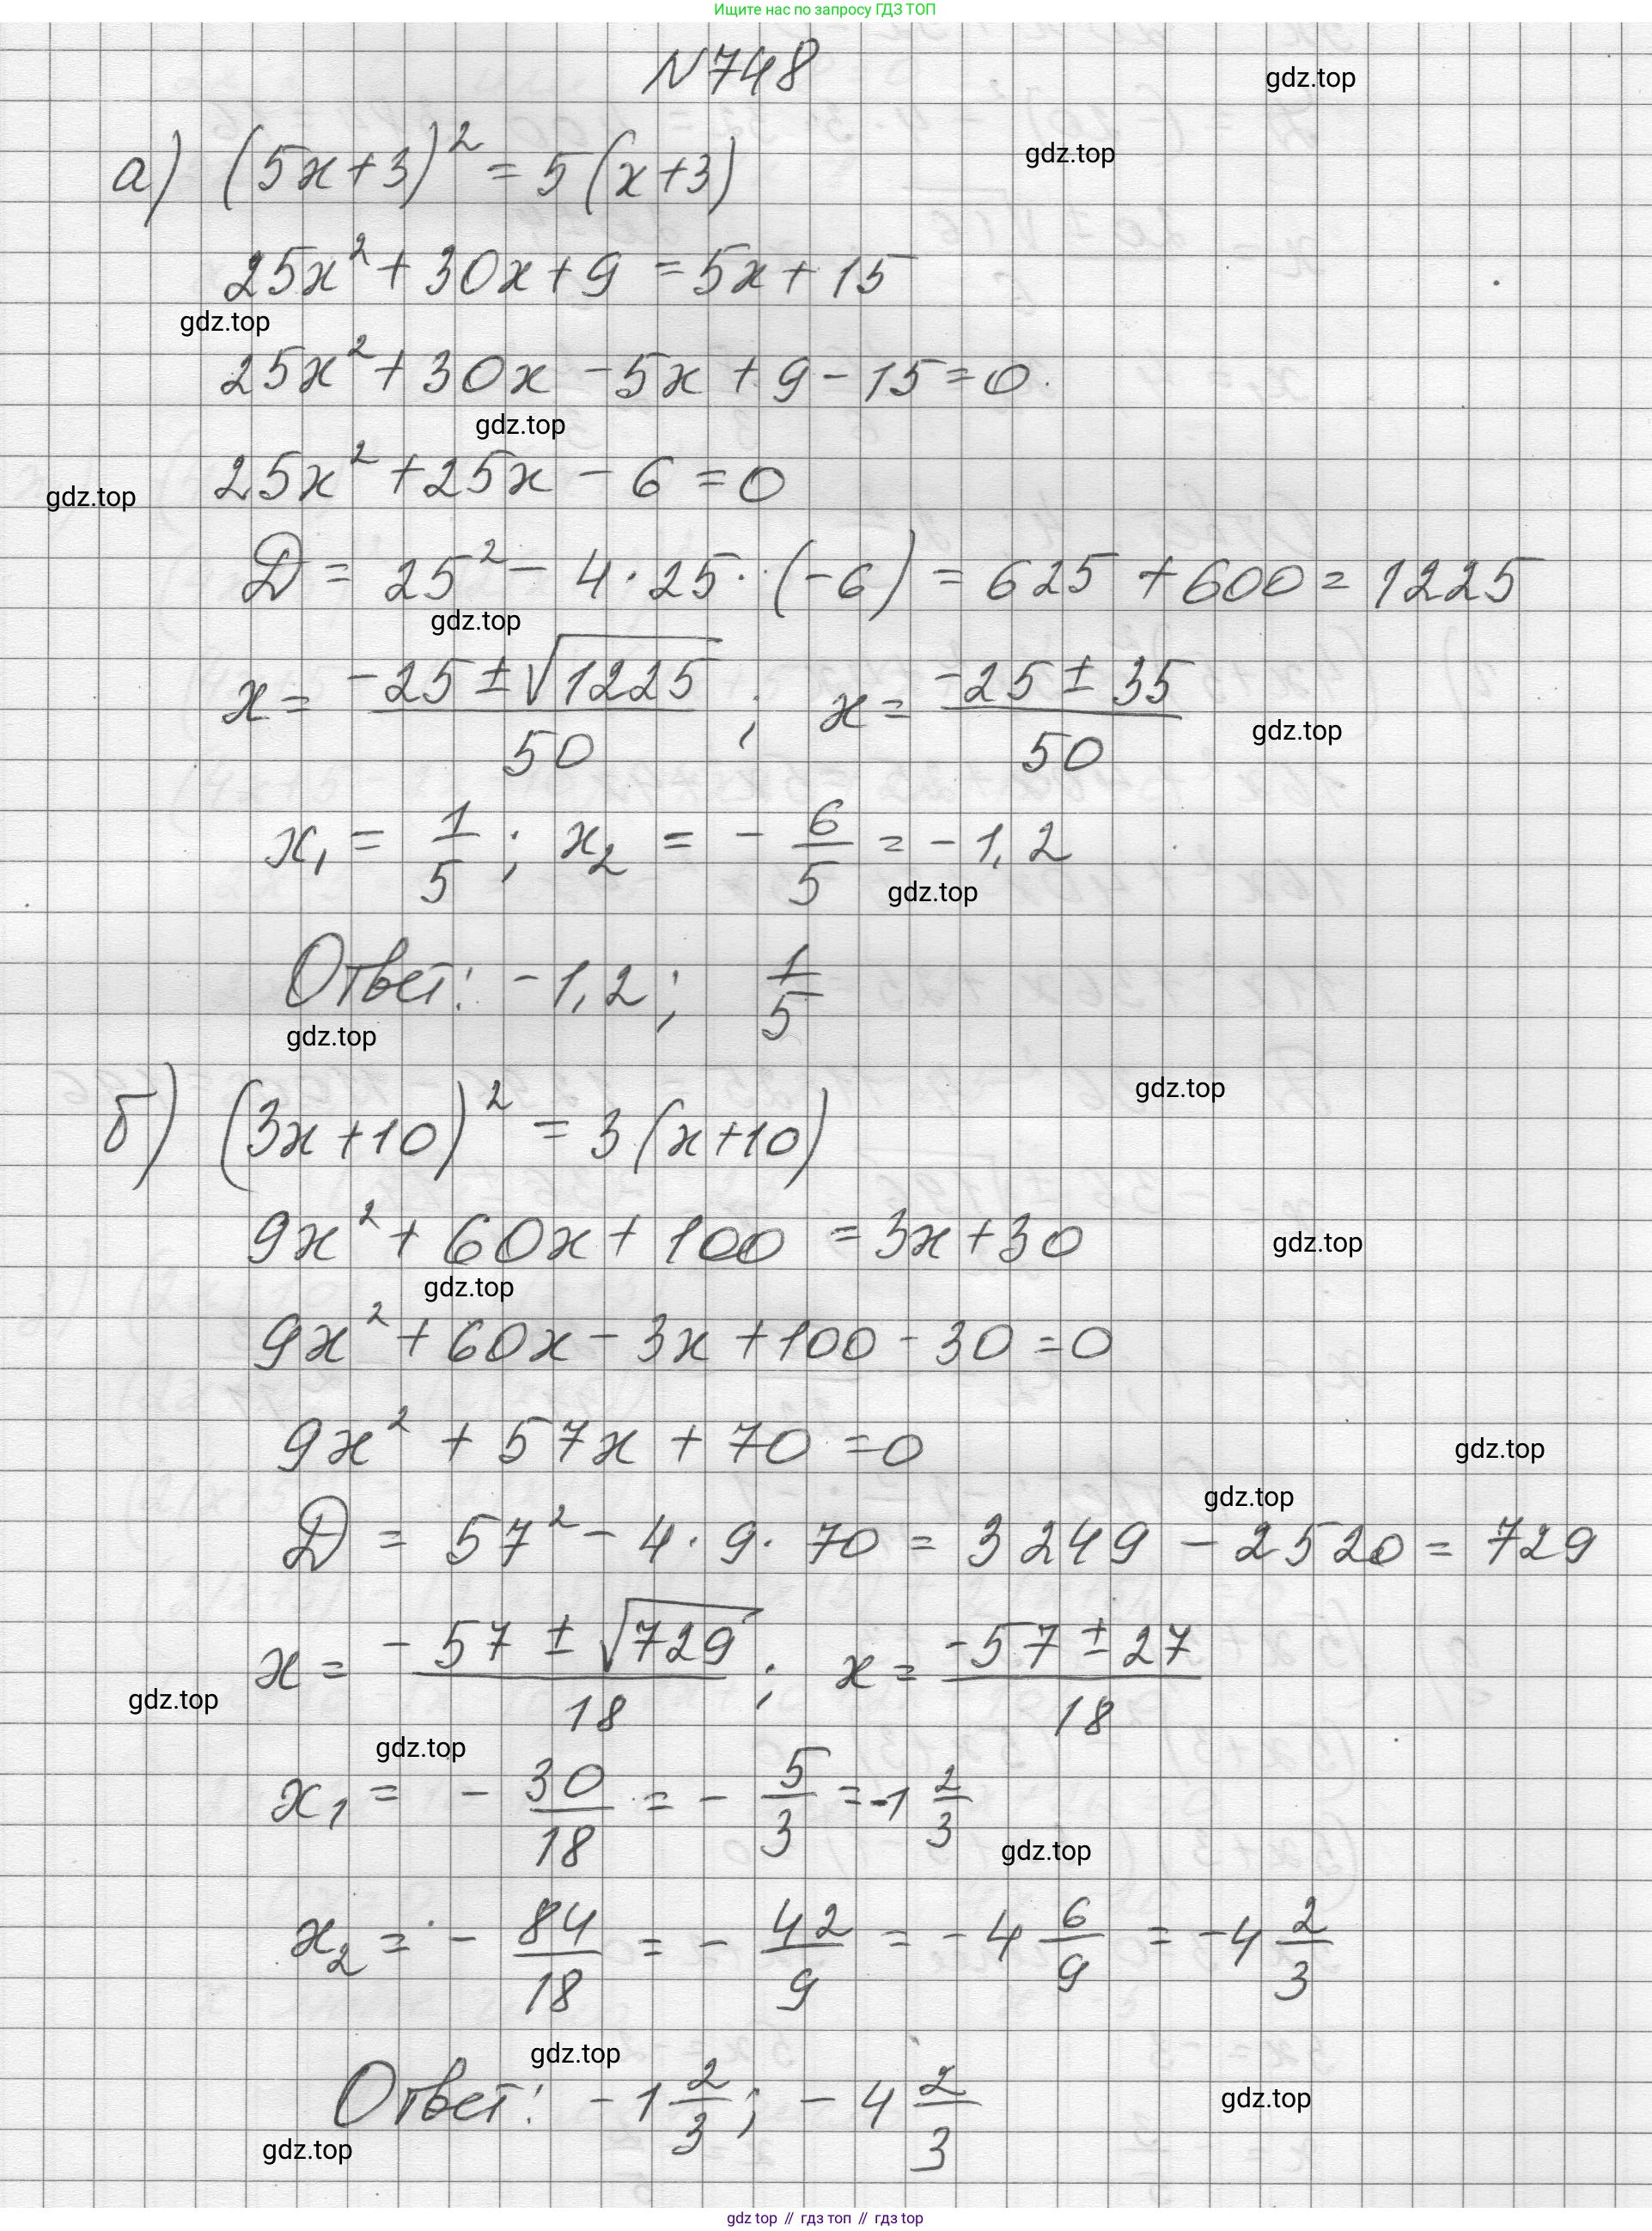 Ищите нас по запросу ГДЗ ТОП
N748
gdz.top
а) (5x+3)² = 5(x+3)
gdz.top
25x² + 30x + 9 = 5x + 15
gdz.top
25x² + 30x - 5x + 9 - 15 = 0
gdz.top
25x² + 25x - 6 = 0
gdz.top
D = 25² - 4·25·(-6) = 625 + 600 = 1225
gdz.top
x = (-25 ± √1225)/50 ; x = (-25 ± 35)/50
gdz.top
x₁ = 1/5 ; x₂ = - 6/5 = -1,2
gdz.top
Ответ: -1,2; 1/5
gdz.top
gdz.top
б) (3x+10)² = 3(x+10)
9x² + 60x + 100 = 3x + 30
gdz.top
gdz.top
9x² + 60x - 3x + 100 - 30 = 0
9x² + 57x + 70 = 0
gdz.top
gdz.top
D = 57² - 4·9·70 = 3249 - 2520 = 729
x = (-57 ± √729)/18 ; x = (-57 ± 27)/18
gdz.top
gdz.top
x₁ = - 30/18 = - 5/3 = -1 2/3
gdz.top
x₂ = - 84/18 = - 42/9 = -4 6/9 = -4 2/3
gdz.top
Ответ: -1 2/3; -4 2/3
gdz.top
gdz.top
gdz top // гдз топ // гдз.top